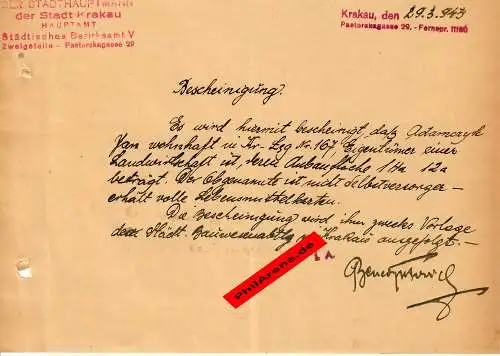 DER STADTHAUPTMANN
der Stadt Krakau
HAUPTAMT
Städtisches Bezirksamt V
Zweigstelle - Pastorskagasse 29
Krakau, den 29.3.1943
Pastorskagasse 29, - Fernspr.
Bescheinigung.
Es wird hiermit bescheinigt, daß Adamczyk
Jan wohnhaft in Kr- Lgg Nr. 167, Eigentümer einer
Landwirtschaft ist, deren Anbaufläche 1 Ha 12a
beträgt. Der Obgenannte ist nicht Selbstversorger -
erhält volle Lebensmittelkarten.
Die Bescheinigung wird ihm zwecks Vorlage
dem Städt. Krakau ausgefolgt. -
PhilArena.de